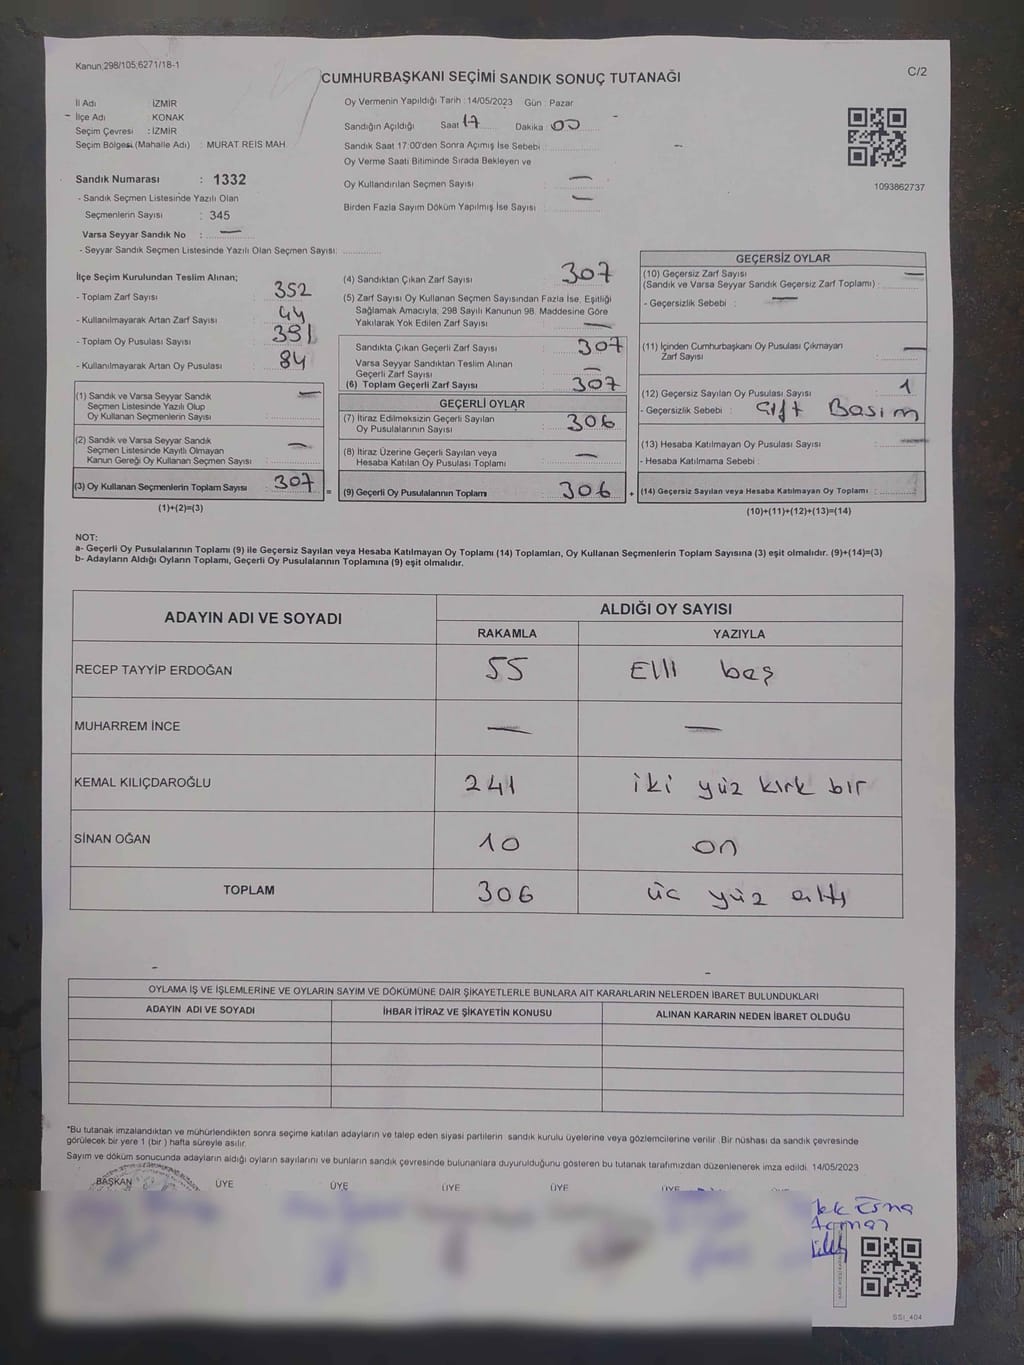 Kanun;298/105,6271/18-1
CUMHURBAŞKANI SEÇİMİ SANDIK SONUÇ TUTANAĞI
C/2
İl Adı İZMİR
İlçe Adı KONAK
Seçim Çevresi : İZMİR
Seçim Bölgesi (Mahalle Adı) : MURAT REIS MAH
Sandık Numarası : 1332
- Sandık Seçmen Listesinde Yazılı Olan
Seçmenlerin Sayısı : 345
Varsa Seyyar Sandık No : —
- Seyyar Sandık Seçmen Listesinde Yazılı Olan Seçmen Sayısı:
Oy Vermenin Yapıldığı Tarih : 14/05/2023 Gün : Pazar
Sandığın Açıldığı Saat 17 Dakika 00
Sandık Saat 17:00'den Sonra Açımış İse Sebebi : —
Oy Verme Saati Bitiminde Sırada Bekleyen ve
Oy Kullandırılan Seçmen Sayısı : —
Birden Fazla Sayım Döküm Yapılmış İse Sayısı : —
1093862737
İlçe Seçim Kurulundan Teslim Alınan;
- Toplam Zarf Sayısı 352
- Kullanılmayarak Artan Zarf Sayısı 44
- Toplam Oy Pusulası Sayısı 391
- Kullanılmayarak Artan Oy Pusulası 84
(1) Sandık ve Varsa Seyyar Sandık —
Seçmen Listesinde Yazılı Olup
Oy Kullanan Seçmenlerin Sayısı
(2) Sandık ve Varsa Seyyar Sandık —
Seçmen Listesinde Kayıtlı Olmayan
Kanun Gereği Oy Kullanan Seçmen Sayısı :
(3) Oy Kullanan Seçmenlerin Toplam Sayısı 307
(1)+(2)=(3)
=
(4) Sandıktan Çıkan Zarf Sayısı 307
(5) Zarf Sayısı Oy Kullanan Seçmen Sayısından Fazla İse, Eşitliği
Sağlamak Amacıyla, 298 Sayılı Kanunun 98. Maddesine Göre
Yakılarak Yok Edilen Zarf Sayısı —
Sandıkta Çıkan Geçerli Zarf Sayısı 307
Varsa Seyyar Sandıktan Teslim Alınan
Geçerli Zarf Sayısı —
(6) Toplam Geçerli Zarf Sayısı 307
GEÇERLİ OYLAR
(7) İtiraz Edilmeksizin Geçerli Sayılan
Oy Pusulalarının Sayısı 306
(8) İtiraz Üzerine Geçerli Sayılan veya
Hesaba Katılan Oy Pusulası Toplamı —
(9) Geçerli Oy Pusulalarının Toplamı 306
+
GEÇERSİZ OYLAR
(10) Geçersiz Zarf Sayısı —
(Sandık ve Varsa Seyyar Sandık Geçersiz Zarf Toplamı) :
- Geçersizlik Sebebi : —
(11) İçinden Cumhurbaşkanı Oy Pusulası Çıkmayan —
Zarf Sayısı
(12) Geçersiz Sayılan Oy Pusulası Sayısı : 1
- Geçersizlik Sebebi : Çift Basim
(13) Hesaba Katılmayan Oy Pusulası Sayısı : —
- Hesaba Katılmama Sebebi :
(14) Geçersiz Sayılan veya Hesaba Katılmayan Oy Toplamı :
(10)+(11)+(12)+(13)=(14)
NOT:
a- Geçerli Oy Pusulalarının Toplamı (9) ile Geçersiz Sayılan veya Hesaba Katılmayan Oy Toplamı (14) Toplamları, Oy Kullanan Seçmenlerin Toplam Sayısına (3) eşit olmalıdır. (9)+(14)=(3)
b- Adayların Aldığı Oyların Toplamı, Geçerli Oy Pusulalarının Toplamına (9) eşit olmalıdır.
ADAYIN ADI VE SOYADI ALDIĞI OY SAYISI
RAKAMLA YAZIYLA
RECEP TAYYİP ERDOĞAN 55 Elli beş
MUHARREM İNCE — —
KEMAL KILIÇDAROĞLU 241 iki yüz kırk bir
SİNAN OĞAN 10 on
TOPLAM 306 üc yüz altı
OYLAMA İŞ VE İŞLEMLERİNE VE OYLARIN SAYIM VE DÖKÜMÜNE DAİR ŞİKAYETLERLE BUNLARA AİT KARARLARIN NELERDEN İBARET BULUNDUKLARI
ADAYIN ADI VE SOYADI İHBAR İTİRAZ VE ŞİKAYETİN KONUSU ALINAN KARARIN NEDEN İBARET OLDUĞU
*Bu tutanak imzalandıktan ve mühürlendikten sonra seçime katılan adayların ve talep eden siyasi partilerin sandık kurulu üyelerine veya gözlemcilerine verilir. Bir nüshası da sandık çevresinde
görülecek bir yere 1 (bir) hafta süreyle asılır.
Sayım ve döküm sonucunda adayların aldığı oyların sayılarını ve bunların sandık çevresinde bulunanlara duyurulduğunu gösteren bu tutanak tarafımızdan düzenlenerek imza edildi. 14/05/2023
BAŞKAN ÜYE ÜYE ÜYE ÜYE ÜYE
SSI_404